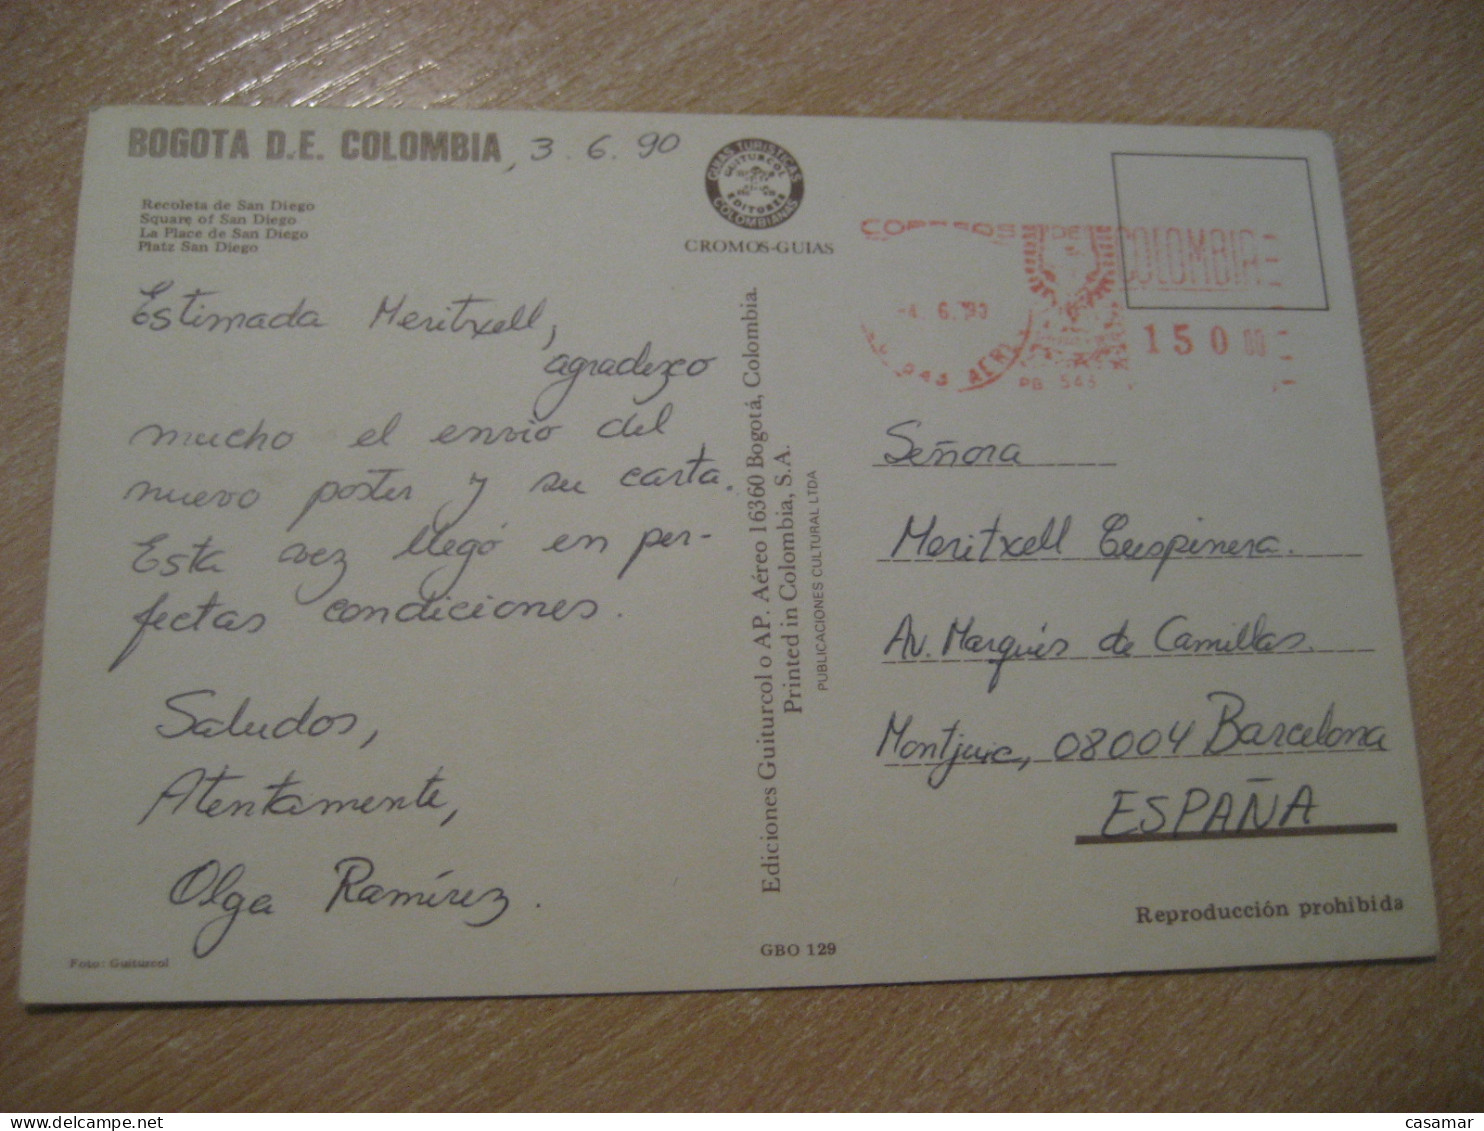 BOGOTA D.E. COLOMBIA, 3.6.90
Recoleta de San Diego
Square of San Diego
La Place de San Diego
Platz San Diego
Estimada Meritxell,
agradezco
mucho el envio del
nuevo poster y su carta.
Esta vez llegó en per-
fectas condiciones.
Saludos,
Atentamente,
Olga Ramírez.
Foto: Guiturcol
GUIAS TURISTICAS
GUITURCOL
EDITORES
COLOMBIANAS
CROMOS-GUIAS
Ediciones Guiturcol o AP. Aéreo 16360 Bogotá, Colombia.
Printed in Colombia, S.A.
PUBLICACIONES CULTURAL LTDA
GBO 129
CORREOS DE COLOMBIA
4.6.90
150 00
PB 543
Señora
Meritxell Cuspinera.
Av. Marqués de Camillas.
Montjuic, 08004 Barcelona
ESPAÑA
Reproducción prohibida
casamar